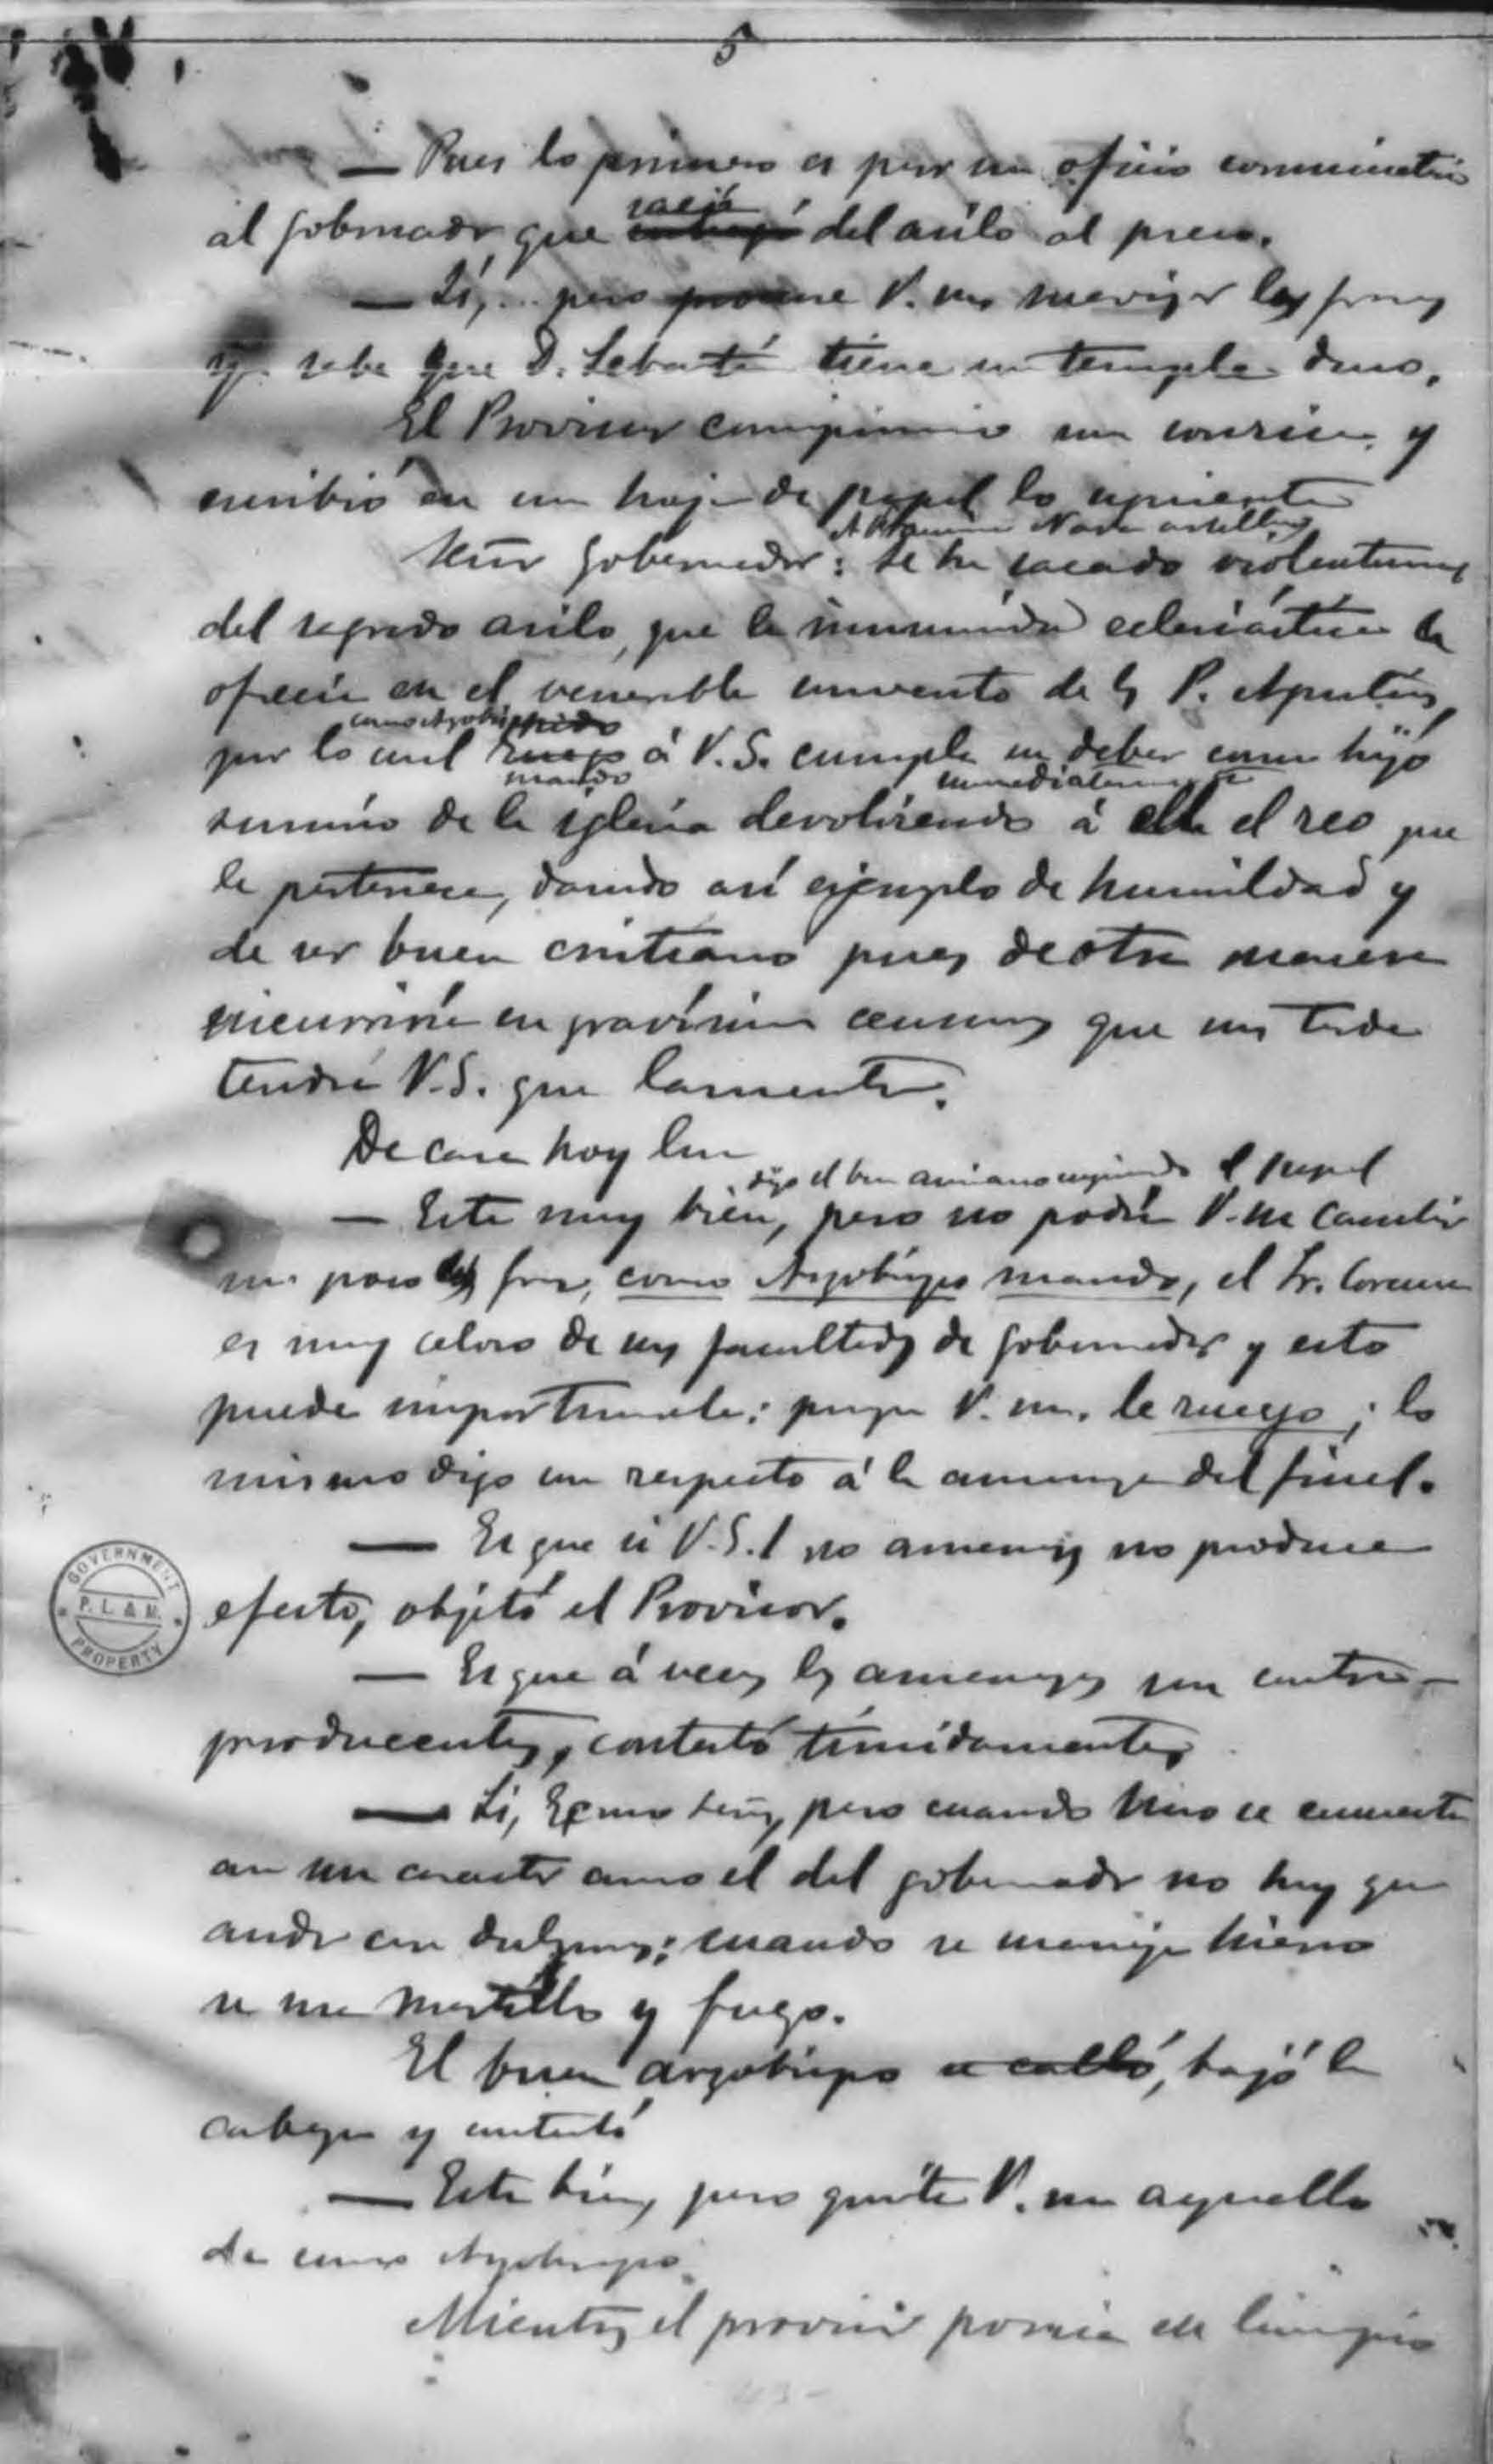 5
— Pues lo primero es por un oficio conminatorio
al Gobernador, que saque del asilo al preso.
— Sí,... pero procure V. m. suavizar las frases
ya sabe que D. Sebastián tiene un temple duro.
El Provisor comprimió una sonrisa y
escribió en una hoja de papel lo siguiente
A Francisco Nava artillero
Señor Gobernador: Se ha sacado violentamente
del sagrado asilo, que la inmunidad eclesiástica le
ofrecía en el venerable convento de los P. Agustinos,
como Arzobispo pido
por lo cual ruego á V. S. cumpla su deber como hijo
mando inmediatamente
sumiso de la iglesia devolviendo á ella el reo que
le pertenece, dando así ejemplo de humildad y
de ser buen cristiano pues de otra manera
incurriría en gravísimas censuras que más tarde
tendría V. S. que lamentar.
De casa hoy lun
dijo el buen anciano cogiendo el papel
— Está muy bien, pero no podría V. m. cambiar
un poco las frases, como Arzobispo mando, el Sr. Corcuera
es muy celoso de sus facultades de gobernador y esto
puede importunarle; ponga V. m. le ruego; lo
mismo digo con respecto á la amenaza del final.
— Es que si V. S. I. no amenaza no produce
efecto, objetó el Provisor.
— Es que á veces las amenazas son contra-
producentes, contestó tímidamente
— Sí, Excmo Señor, pero cuando uno se encuentra
con un caracter como el del gobernador no hay que
andar con dulzuras; cuando se maneja hierro
se usa martillo y fuego.
El buen arzobispo se calló, bajó la
cabeza y contestó
— Está bien, pero quite V. m. aquello
de como Arzobispo.
Mientras el provisor ponía en limpio
GOVERNMENT
P. L. & M.
PROPERTY